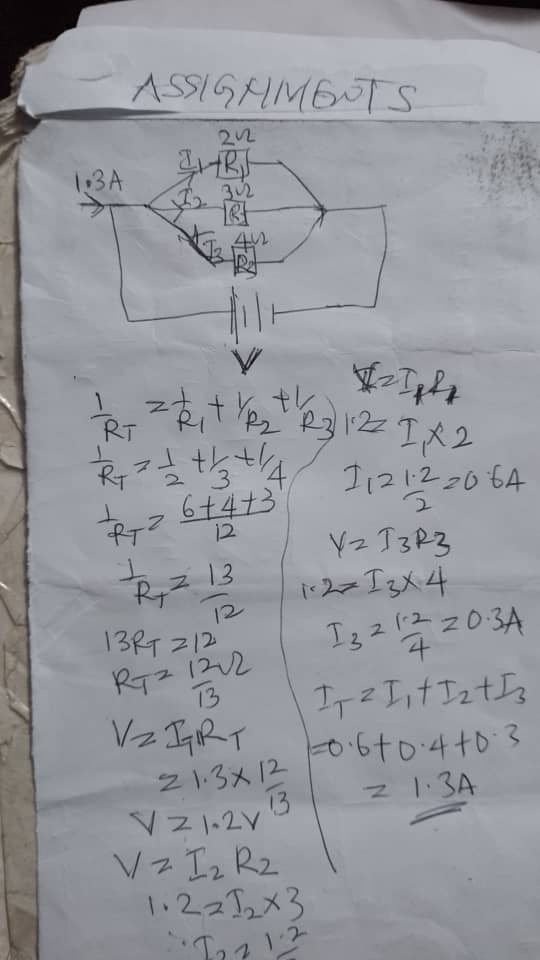 ASSIGNMENTS
2Ω
I₁ R₁
1.3A
3Ω
I₂ R
4Ω
I₃ R₃
V
1/RT = 1/R₁ + 1/R₂ + 1/R₃
1/RT = 1/2 + 1/3 + 1/4
1/RT = 6+4+3/12
1/RT = 13/12
13RT = 12
RT = 12/13 Ω
V = ITRT
= 1.3 × 12/13
V = 1.2V
V = I₂R₂
1.2 = I₂ × 3
I₂ = 1.2
V = I₁R₁
1.2 = I₁ × 2
I₁ = 1.2/2 = 0.6A
V = I₃R₃
1.2 = I₃ × 4
I₃ = 1.2/4 = 0.3A
IT = I₁ + I₂ + I₃
= 0.6 + 0.4 + 0.3
= 1.3A